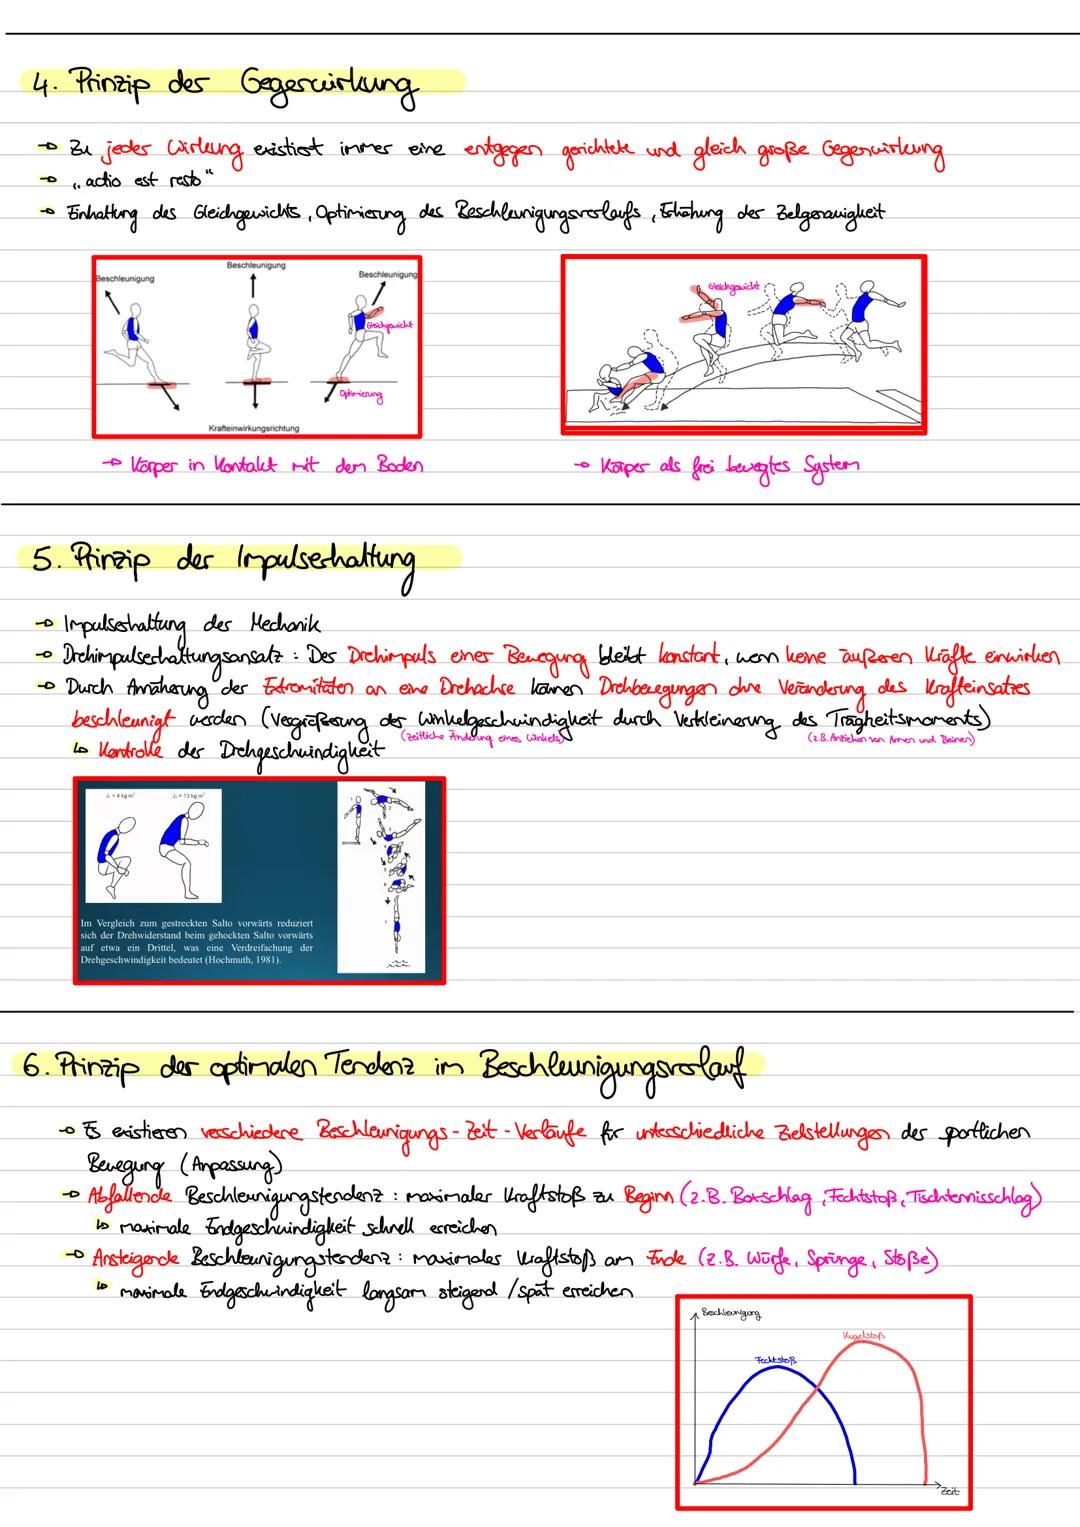 4. Prinzip der Gegenwirkung
→ Zu jeder Wirkung existiert immer eine entgegen gerichtete und gleich große Gegenwirkung
→ "actio est reatio"
→ Einhaltung des Gleichgewichts, Optimierung des Beschleunigungsverlaufs, Erhöhung der Zielgenauigkeit
Beschleunigung Beschleunigung Beschleunigung
Gleichgewicht
Optimierung
Krafteinwirkungsrichtung
Gleichgewicht
→ Körper in Kontakt mit dem Boden
→ Körper als frei bewegtes System
5. Prinzip der Impulserhaltung
→ Impulserhaltung der Mechanik
→ Drehimpulserhaltungsansatz: Der Drehimpuls einer Bewegung bleibt konstant, wenn keine äußeren Kräfte einwirken
→ Durch Annäherung der Extremitäten an eine Drehachse können Drehbewegungen ohne Veränderung des Krafteinsatzes
beschleunigt werden (Vergrößerung der Winkelgeschwindigkeit durch Verkleinerung des Trägheitsmoments)
(zeitliche Änderung eines Winkels) (z.B. Anziehen von Armen und Beinen)
↳ Kontrolle der Drehgeschwindigkeit
Im Vergleich zum gestreckten Salto vorwärts reduziert
sich der Drehwiderstand beim gehockten Salto vorwärts
auf etwa ein Drittel, was eine Verdreifachung der
Drehgeschwindigkeit bedeutet (Hochmuth, 1981).
6. Prinzip der optimalen Tendenz im Beschleunigungsverlauf
→ Es existieren verschiedene Beschleunigungs-Zeit-Verläufe für unterschiedliche Zielstellungen der sportlichen
Bewegung (Anpassung)
→ Abfallende Beschleunigungstendenz: maximaler Kraftstoß zu Beginn (z.B. Boxschlag, Fechtstoß, Tischtennisschlag)
↳ maximale Endgeschwindigkeit schnell erreichen
→ Ansteigende Beschleunigungstendenz: maximaler Kraftstoß am Ende (z.B. Würfe, Sprünge, Stöße)
↳ maximale Endgeschwindigkeit langsam steigend / spät erreichen
Beschleunigung
Kugelstoß
Fechtstoß
Zeit